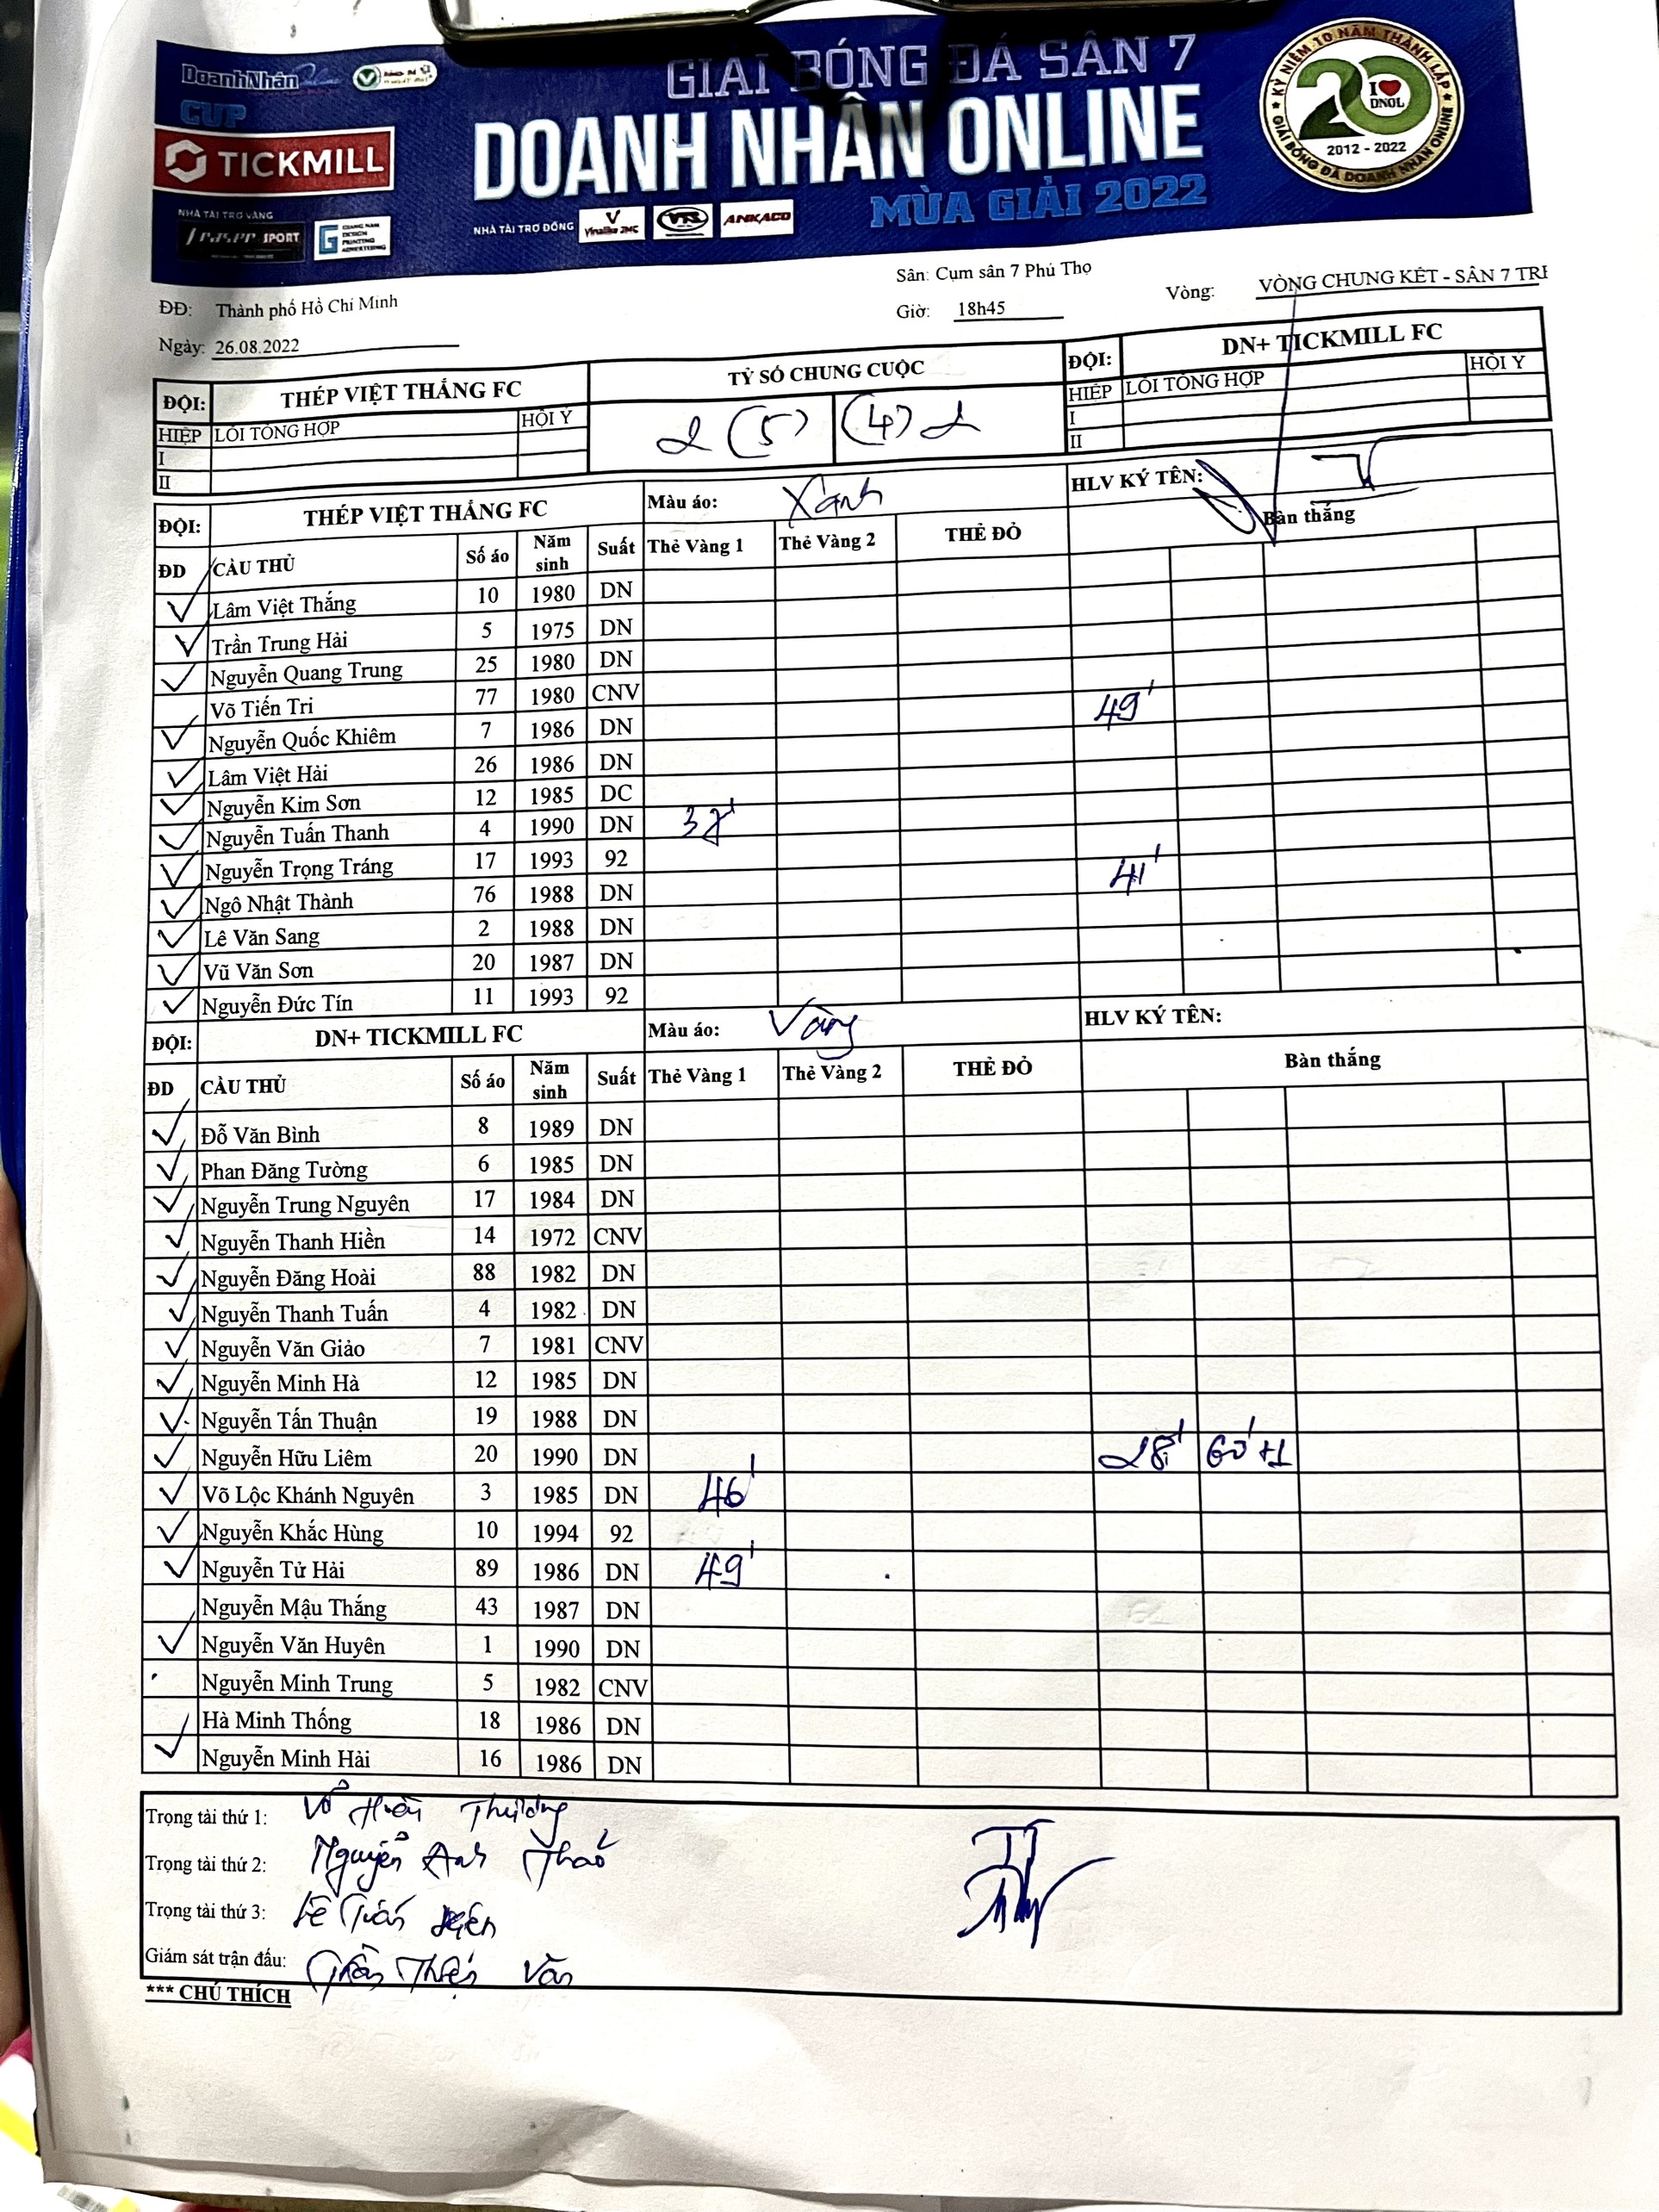 GIẢI BÓNG ĐÁ SÂN 7
DOANH NHÂN ONLINE
MÙA GIẢI 2022
DoanhNhân
CUP
TICKMILL
NHÀ TÀI TRỢ VÀNG
SPORT
NHÀ TÀI TRỢ ĐỒNG
VTS
ANKACO
KỶ NIỆM 10 NĂM THÀNH LẬP
20
I ❤ DNOL
2012 - 2022
GIẢI BÓNG ĐÁ DOANH NHÂN ONLINE
ĐĐ: Thành phố Hồ Chí Minh
Sân: Cụm sân 7 Phú Thọ
Ngày: 26.08.2022
Giờ: 18h45
Vòng: VÒNG CHUNG KẾT - SÂN 7 TRI
ĐỘI: THÉP VIỆT THẮNG FC TỶ SỐ CHUNG CUỘC ĐỘI: DN+ TICKMILL FC
HIỆP LỖI TỔNG HỢP HỘI Ý 2 (5) (4) 2 HIỆP LỖI TỔNG HỢP HỘI Ý
I I
II II
ĐỘI: THÉP VIỆT THẮNG FC Màu áo: Xanh HLV KÝ TÊN:
ĐD CẦU THỦ Số áo Năm sinh Suất Thẻ Vàng 1 Thẻ Vàng 2 THẺ ĐỎ Bàn thắng
Lâm Việt Thắng 10 1980 DN
Trần Trung Hải 5 1975 DN
Nguyễn Quang Trung 25 1980 DN
Võ Tiến Tri 77 1980 CNV
Nguyễn Quốc Khiêm 7 1986 DN 49'
Lâm Việt Hải 26 1986 DN
Nguyễn Kim Sơn 12 1985 DC
Nguyễn Tuấn Thanh 4 1990 DN
Nguyễn Trọng Tráng 17 1993 92
Ngô Nhật Thành 76 1988 DN 41'
Lê Văn Sang 2 1988 DN
Vũ Văn Sơn 20 1987 DN
Nguyễn Đức Tín 11 1993 92
ĐỘI: DN+ TICKMILL FC Màu áo: Vàng HLV KÝ TÊN:
ĐD CẦU THỦ Số áo Năm sinh Suất Thẻ Vàng 1 Thẻ Vàng 2 THẺ ĐỎ Bàn thắng
Đỗ Văn Bình 8 1989 DN
Phan Đăng Tường 6 1985 DN
Nguyễn Trung Nguyên 17 1984 DN
Nguyễn Thanh Hiền 14 1972 CNV
Nguyễn Đăng Hoài 88 1982 DN
Nguyễn Thanh Tuấn 4 1982 DN
Nguyễn Văn Giảo 7 1981 CNV
Nguyễn Minh Hà 12 1985 DN
Nguyễn Tấn Thuận 19 1988 DN
Nguyễn Hữu Liêm 20 1990 DN 28' 60'+1
Võ Lộc Khánh Nguyên 3 1985 DN 46'
Nguyễn Khắc Hùng 10 1994 92
Nguyễn Tử Hải 89 1986 DN 49'
Nguyễn Mậu Thắng 43 1987 DN
Nguyễn Văn Huyên 1 1990 DN
Nguyễn Minh Trung 5 1982 CNV
Hà Minh Thống 18 1986 DN
Nguyễn Minh Hải 16 1986 DN
Trọng tài thứ 1: Võ Thương
Trọng tài thứ 2: Nguyễn Anh
Trọng tài thứ 3: Lê
Giám sát trận đấu: Trần Văn
*** CHÚ THÍCH